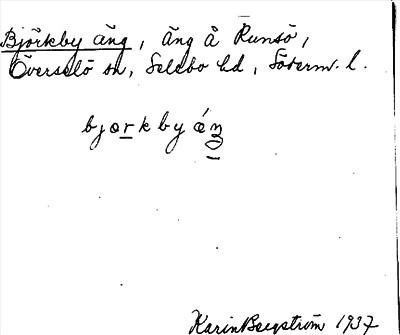 Björkby äng, äng å Runsö,
Överselö sn, Selebo hd, Söderm. l.
bjørkby ǽŋ
Karin Bergström 1937